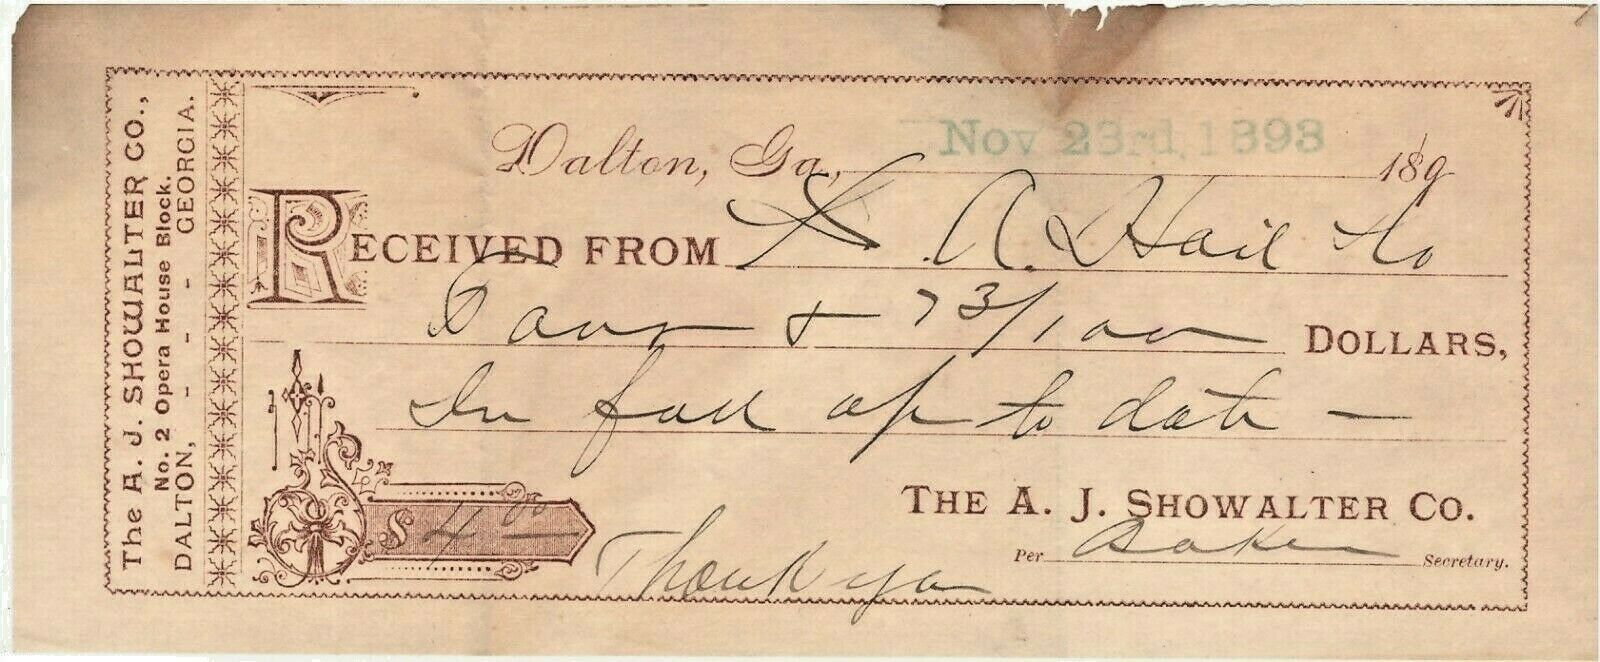 The A. J. SHOWALTER CO.,
No. 2 Opera House Block.
DALTON, - - - - GEORGIA.
Dalton, Ga., Nov 23rd, 1893 189
RECEIVED FROM A. Hail & Co
Four & 73/100 DOLLARS,
In full up to date —
THE A. J. SHOWALTER CO.
$4
Per Baker Secretary.
Thank you